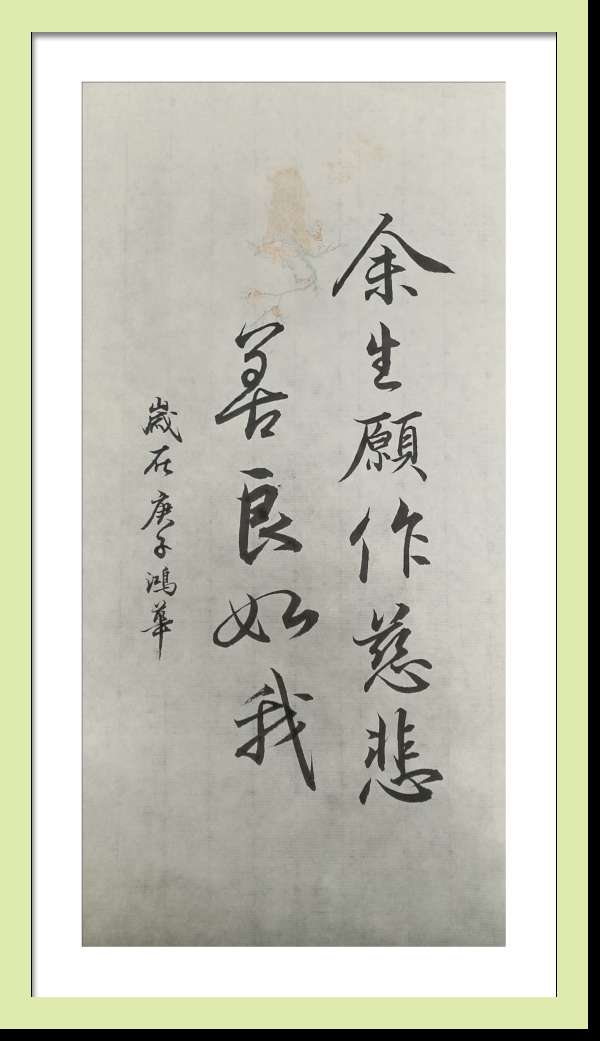 余生願作慈悲
善良如我
歲在庚子鴻華